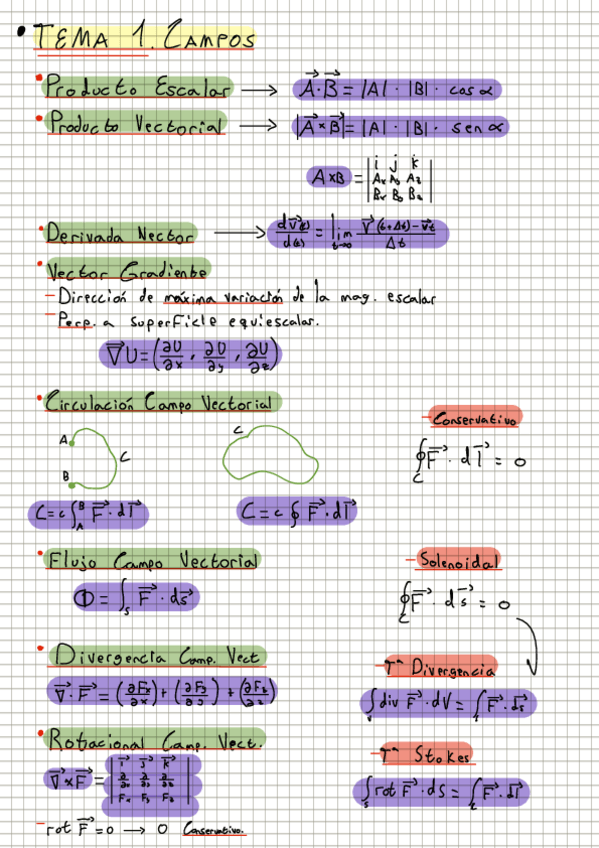 • TEMA 1. CAMPOS
• Producto Escalar → A⃗·B⃗ = |A| · |B| · cos α
• Producto Vectorial → |A⃗×B⃗| = |A| · |B| · sen α
A×B = | i j k |
| Ax Ay Az |
| Bx By Bz |
• Derivada Vector → dv⃗(t)/d(t) = lim t→0 v⃗(t+Δt)-v⃗t / Δt
• Vector Gradiente
- Dirección de máxima variación de la mag. escalar
- Perp. a superficie equiescalar.
∇⃗U = (∂U/∂x, ∂U/∂y, ∂U/∂z)
• Circulación Campo Vectorial
- Conservativo
A
C
B
C
∮c F⃗ · dl⃗ = 0
C = c∫ᴮ_A F⃗ · dl⃗
C = c∮ F⃗ · dl⃗
• Flujo Campo Vectorial
- Solenoidal
Φ = ∫s F⃗ · ds⃗
∮c F⃗ · ds⃗ = 0
• Divergencia Camp. Vect
- Tᵐ Divergencia
∇⃗ · F⃗ = (∂Fx/∂x) + (∂Fy/∂y) + (∂Fz/∂z)
∫v div F⃗ · dV = ∫ F⃗ · ds⃗
• Rotacional Camp. Vect.
- Tᵐ Stokes
∇⃗×F⃗ = | i⃗ j⃗ k⃗ |
| ∂/∂x ∂/∂y ∂/∂z |
| Fx Fy Fz |
∫s rot F⃗ · dS = ∫c F⃗ · dl⃗
- rot F⃗ = 0 → 0 Conservativo.